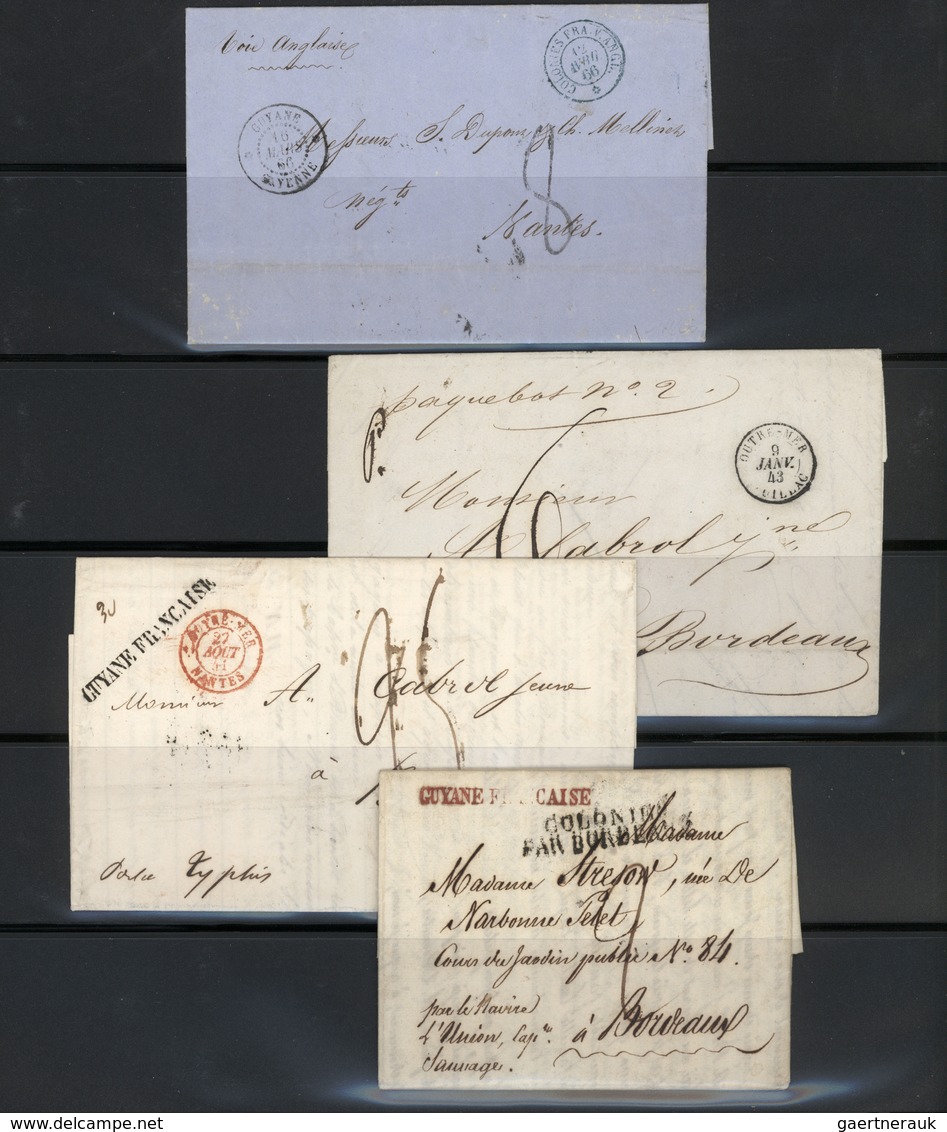 Voie Anglaise
COLONIES FRAN. ANGL.
12
66
GUYANE
16
MARS
66
CAYENNE
Messieurs S. Dupouy & Ch. Mellinet
négts
8
Nantes.
paquebot No. 2
OUTRE-MER
9
JANV.
43
Monsieur
Cabrol jne
Bordeaux
GUYANE FRANCAISE
30
OUTRE-MER
27
AOUT
NANTES
Monsieur A. Cabrol jeune
à
GUYANE FRANCAISE
COLONIES
PAR BORDEAUX
Madame
Madame Stregon, née De
Narbonne Pelet
Cours du Jardin public No. 84.
par le Navire
L'Union, Cape. à Bordeaux
Sauvage.
gaertnerauk